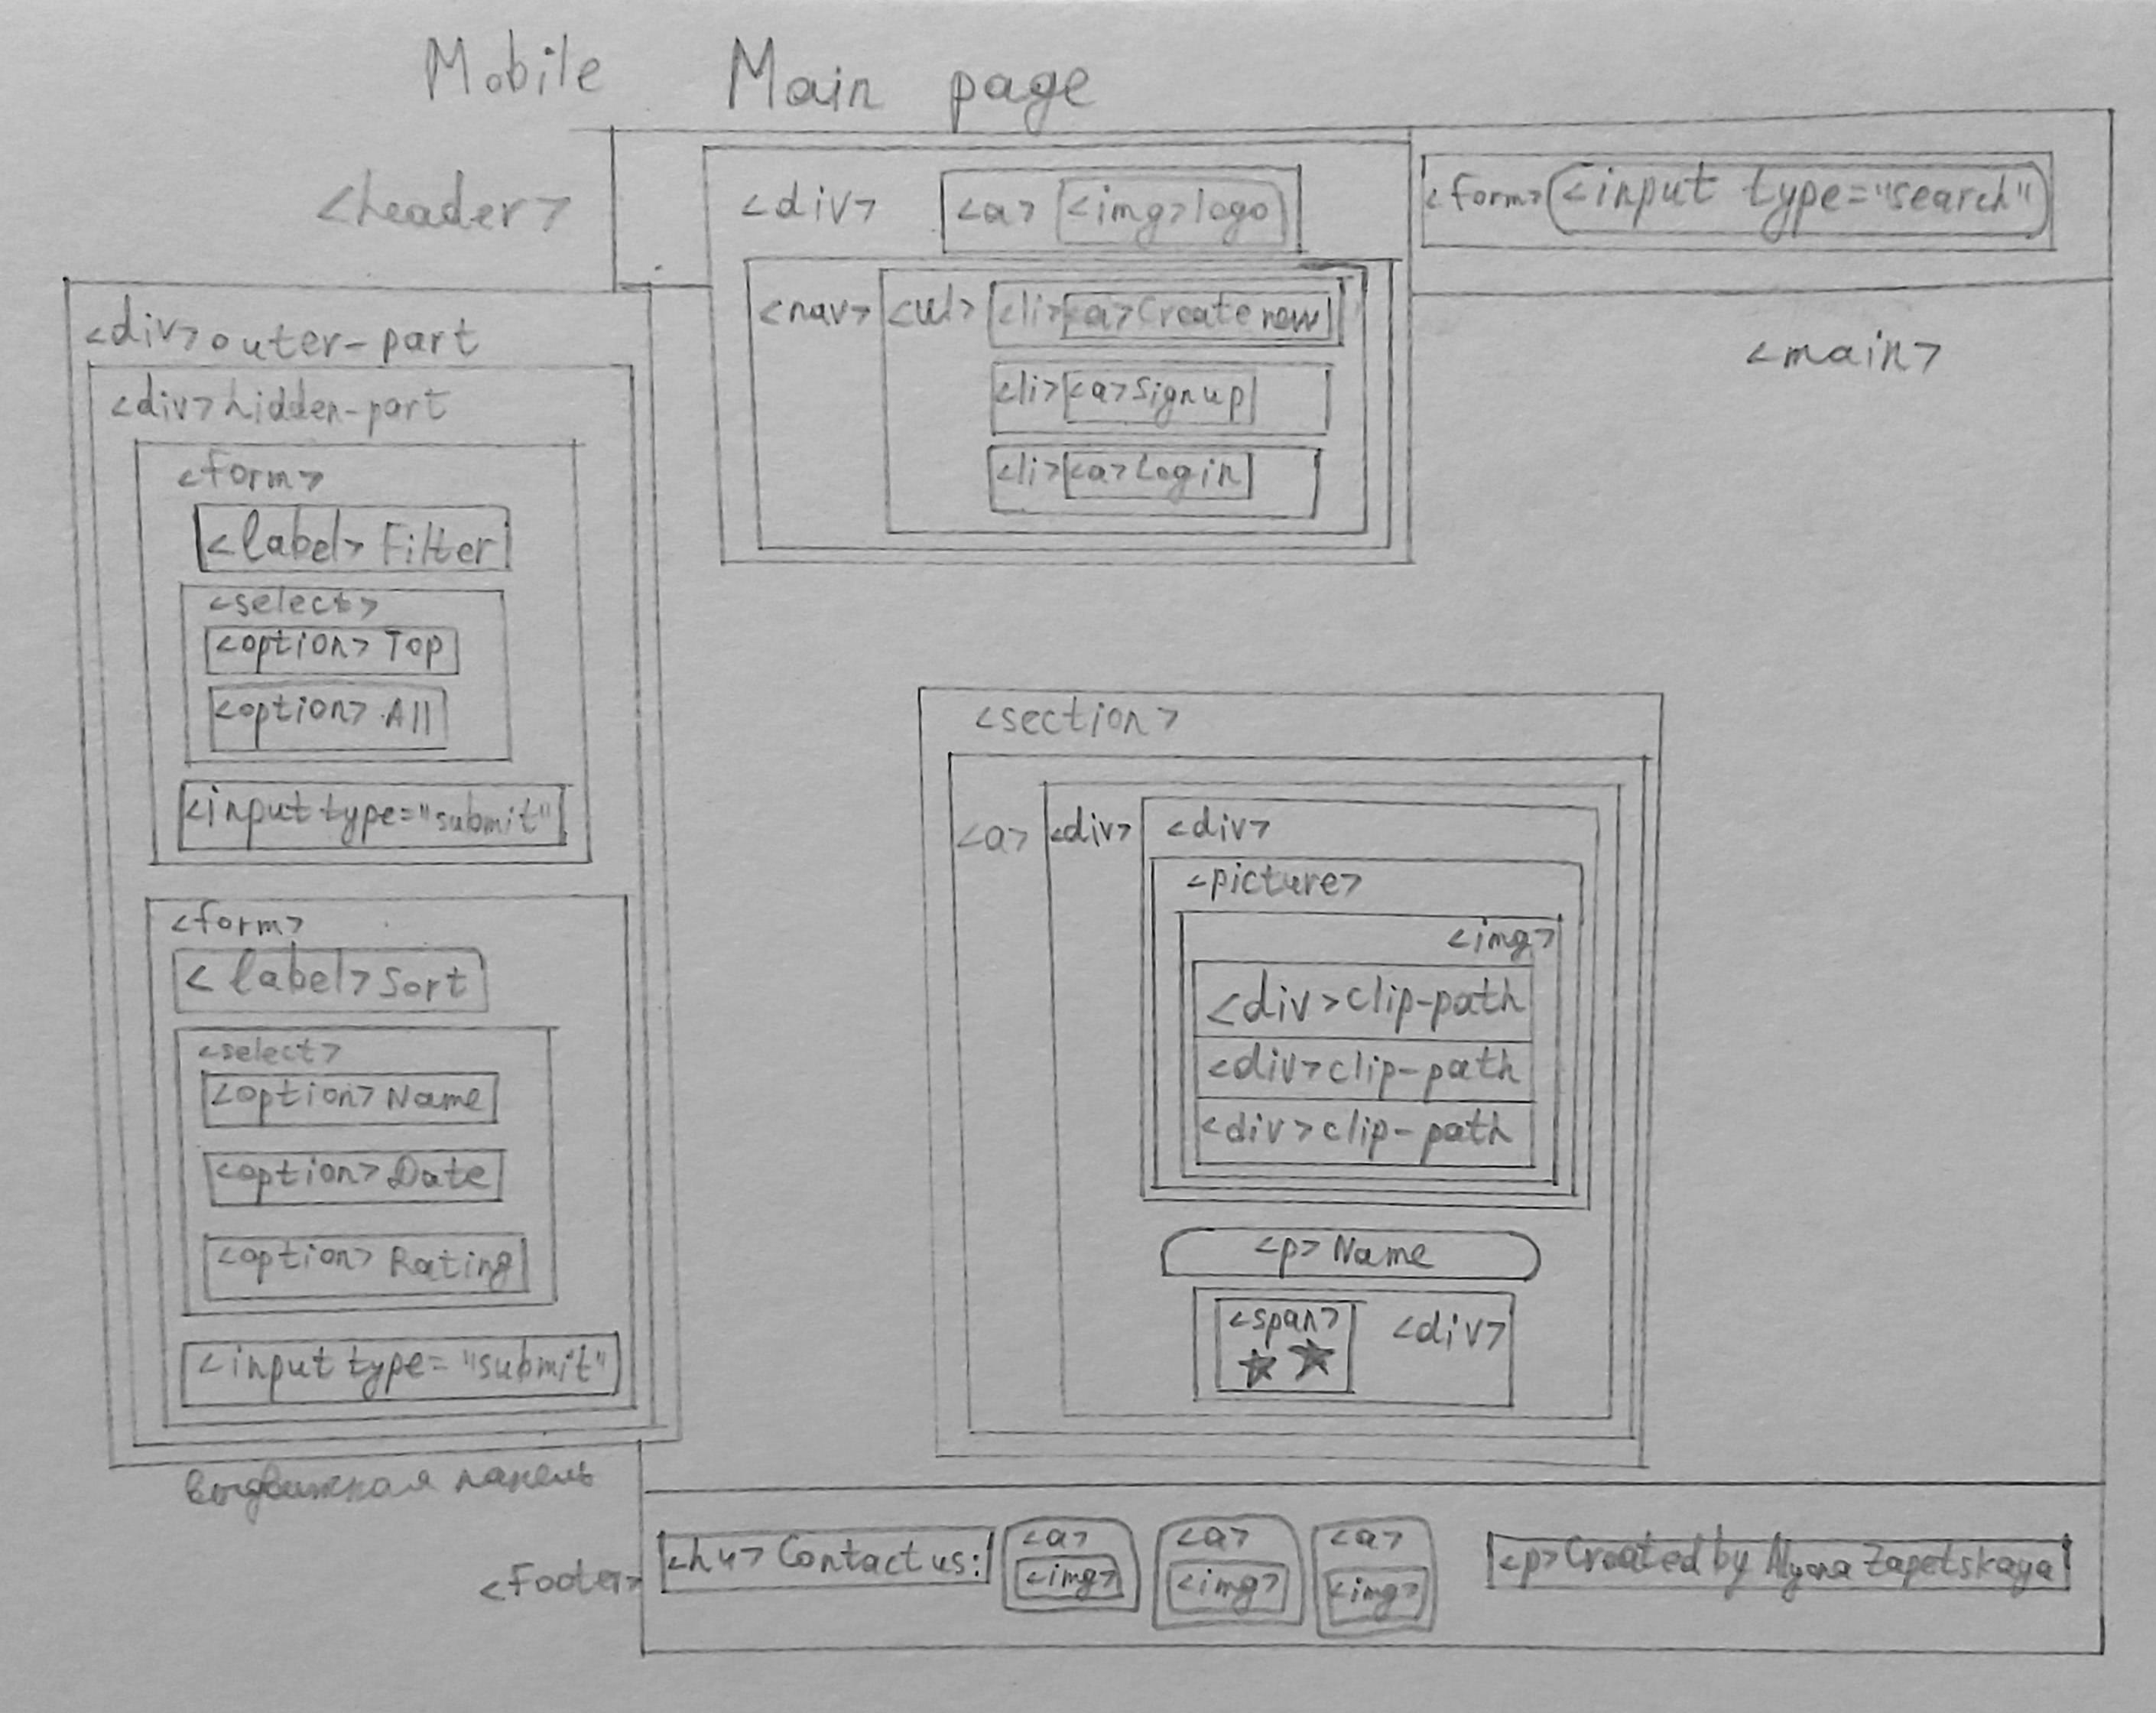 Mobile Main page
<header>
<div> <a> <img> logo
<form> <input type="search"
<nav> <ul> <li> <a> Create new
<li> <a> Sign up
<li> <a> Login
<main>
<div> outer-part
<div> hidden-part
<form>
<label> Filter
<select>
<option> Top
<option> All
<input type="submit"
<form>
<label> Sort
<select>
<option> Name
<option> Date
<option> Rating
<input type="submit"
выдвижная панель
<section>
<a> <div> <div>
<picture>
<img>
<div> clip-path
<div> clip-path
<div> clip-path
<p> Name
<span> <div>
<footer> <h4> Contact us: <a> <a> <a> <p> Created by Alyona Zapetskaya
<img> <img> <img>